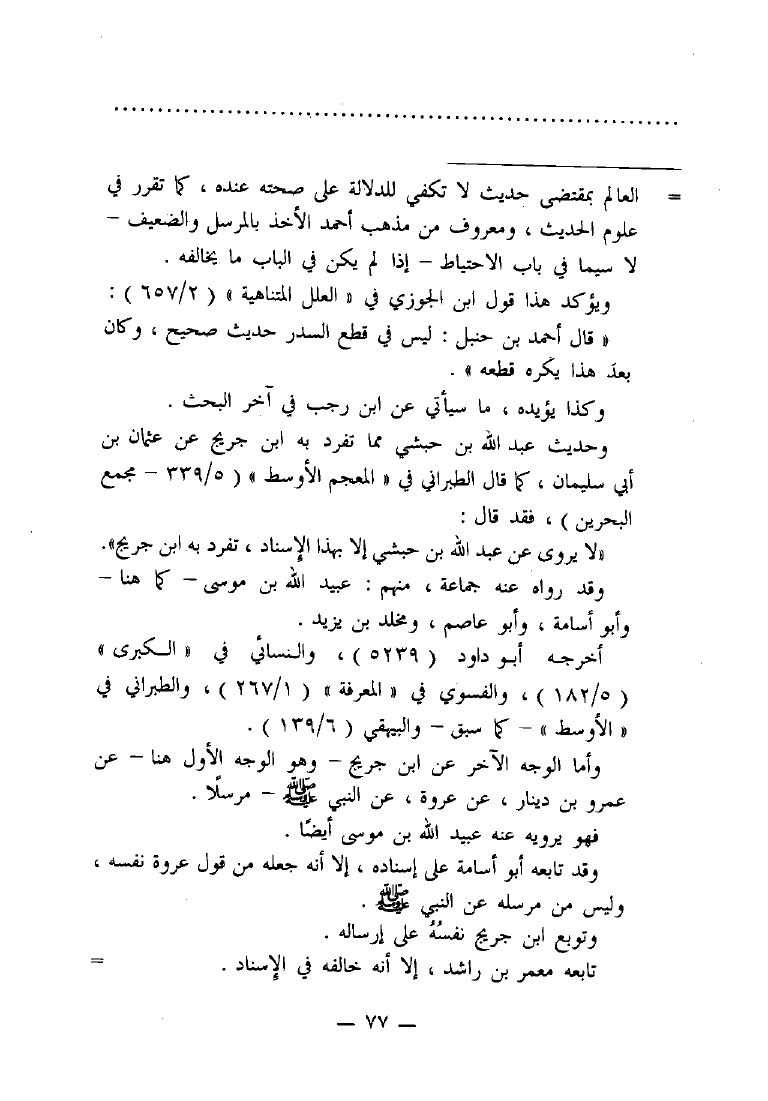 = العالم بمقتضى حديث لا تكفي للدلالة على صحته عنده ، كما تقرر في
علوم الحديث ، ومعروف من مذهب أحمد الأخذ بالمرسل والضعيف –
لا سيما في باب الاحتياط – إذا لم يكن في الباب ما يخالفه .
ويؤكد هذا قول ابن الجوزي في « العلل المتناهية » ( ٦٥٧/٢ ) :
« قال أحمد بن حنبل : ليس في قطع السدر حديث صحيح ، وكان
بعدَ هذا يكَره قطعه » .
وكذا يؤيده ، ما سيأتي عن ابن رجب في آخر البحث .
وحديث عبد الله بن حبشي مما تفرد به ابن جريج عن عثمان بن
أبي سليمان ، كما قال الطبراني في « المعجم الأوسط » ( ٣٣٩/٥ – مجمع
البحرين ) ، فقد قال :
«لا يروى عن عبد الله بن حبشي إلا بهذا الإسناد ، تفرد به ابن جريج».
وقد رواه عنه جماعة ، منهم : عبيد الله بن موسى – كما هنا –
وأبو أسامة ، وأبو عاصم ، ومخلد بن يزيد .
أخرجه أبو داود ( ٥٢٣٩ ) ، والنسائي في « الكبرى »
( ١٨٢/٥ ) ، والفسوي في « المعرفة » ( ٢٦٧/١ ) ، والطبراني في
« الأوسط » – كما سبق – والبيهقي ( ١٣٩/٦ ) .
وأما الوجه الآخر عن ابن جريج – وهو الوجه الأول هنا – عن
عمرو بن دينار ، عن عروة ، عن النبي ﷺ – مرسلًا .
فهو يرويه عنه عبيد الله بن موسى أيضًا .
وقد تابعه أبو أسامة على إسناده ، إلا أنه جعله من قول عروة نفسه ،
وليس من مرسله عن النبي ﷺ .
وتوبع ابن جريج نفسُهُ على إرساله .
تابعه معمر بن راشد ، إلا أنه خالفه في الإسناد . =
– ٧٧ –